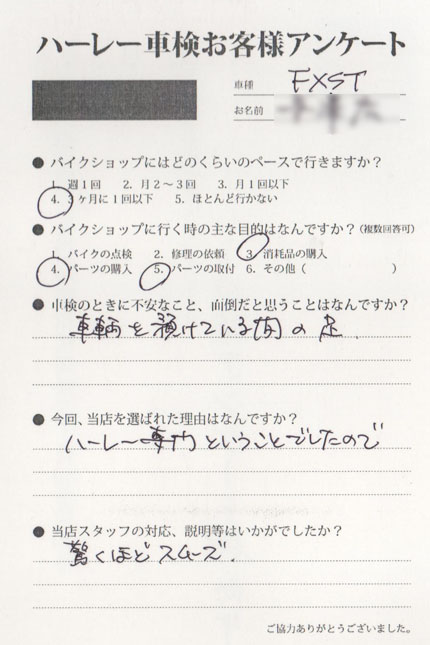 ハーレー車検お客様アンケート
車種 FXST
お名前
● バイクショップにはどのくらいのペースで行きますか？
1. 週1回 2. 月2～3回 3. 月1回以下
4. 3ヶ月に1回以下 5. ほとんど行かない
● バイクショップに行く時の主な目的はなんですか？(複数回答可)
1. バイクの点検 2. 修理の依頼 3. 消耗品の購入
4. パーツの購入 5. パーツの取付 6. その他（ ）
● 車検のときに不安なこと、面倒だと思うことはなんですか？
車輌を預けている間の足.
● 今回、当店を選ばれた理由はなんですか？
ハーレー専門ということでしたので
● 当店スタッフの対応、説明等はいかがでしたか？
驚くほどスムーズ.
ご協力ありがとうございました。